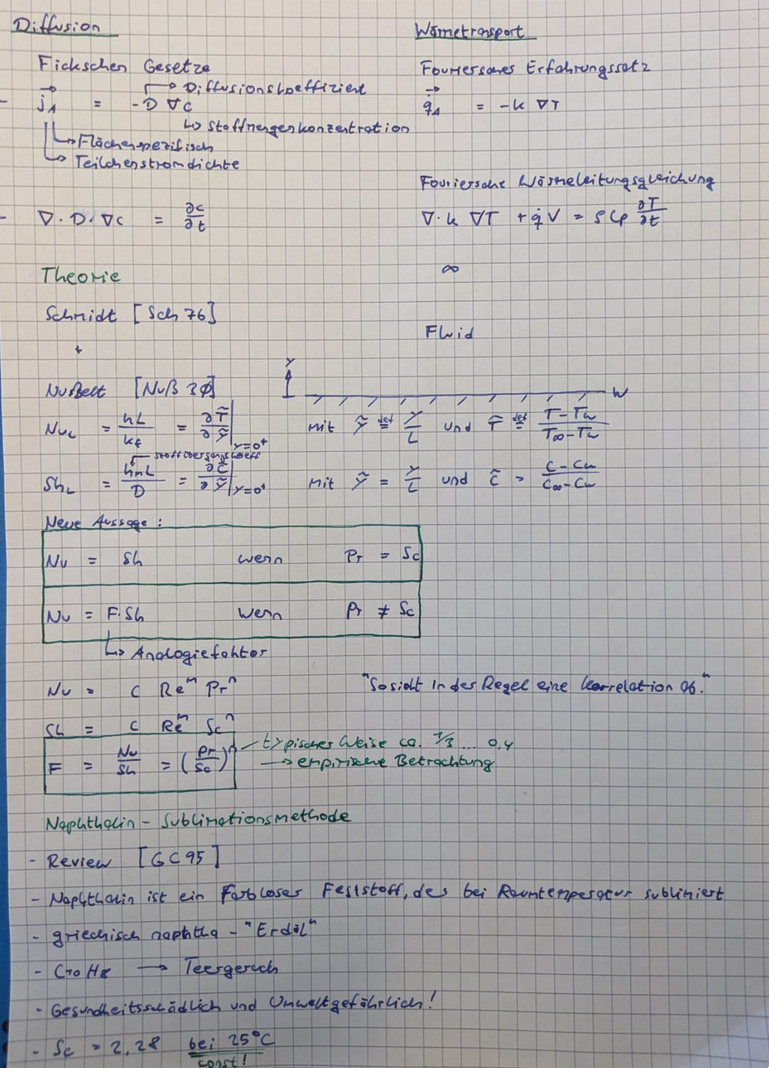 Diffusion
Wärmetransport
Fickschen Gesetze
Fouriersches Erfahrungssatz
→ Diffusionskoeffizient
j⃗₁ = -D ∇c
q⃗₁ = -k ∇T
↳ Stoffmengenkonzentration
↳ Flächenspezifisch
↳ Teilchenstromdichte
Fouriersche Wärmeleitungsgleichung
∇·D·∇c = ∂c/∂t
∇·k ∇T + q̇V = ρ cp ∂T/∂t
Theorie
∞
Schmidt [Sch 76]
Fluid
+
Y
Nußelt [Nuß 30]
W
Nu_L = hL/k_f = ∂T̃/∂ỹ |y=0⁺ mit ỹ def= Y/L und T̃ def= T-Tw/T∞-Tw
Stoffübergangskoeff
Sh_L = hmL/D = ∂c̃/∂ỹ |y=0⁺ mit ỹ = Y/L und c̃ = c-cw/c∞-cw
Neue Aussage:
Nu = Sh wenn Pr = Sc
Nu = F·Sh wenn Pr ≠ Sc
↳ Analogiefaktor
Nu = C Reᵐ Prⁿ "So sieht in der Regel eine Korrelation ab."
Sh = C Reᵐ Scⁿ
F = Nu/Sh = (Pr/Sc)ⁿ typischer Weise ca. 1/3 ... 0,4
→ empirische Betrachtung
Naphthalin - Sublimationsmethode
- Review [GC95]
- Naphthalin ist ein Farbloser Feststoff, des bei Raumtemperatur sublimiert
- griechisch naphtha - "Erdöl"
- C10 H8 → Teergeruch
- Gesundheitsschädlich und Umweltgefährlich!
- Sc = 2,28 bei 25°C
const!